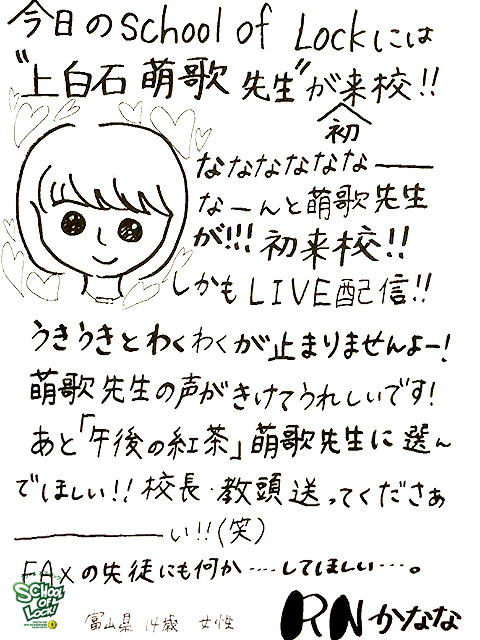 今日のschool of Lockには
"上白石 萌歌 先生"が来校!!
初
なななななな──
なーんと萌歌先生
が!!! 初来校!!
しかもLIVE配信!!
うきうきとわくわくが止まりませんよー!
萌歌先生の声がきけてうれしいです!
あと「午後の紅茶」萌歌先生に選ん
でほしい!! 校長・教頭送ってくださぁ
──────い!!(笑)
FAXの生徒にも何か……してほしい…。
SCHOOL OF LOCK!
富山県 14歳 女性
RNかなな